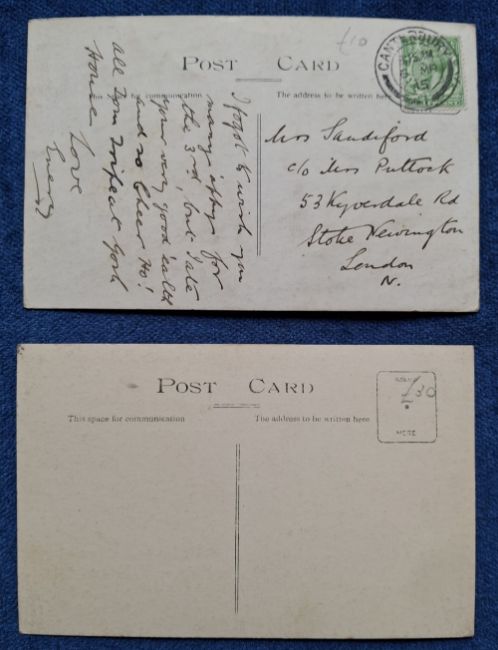 £10
POST CARD
for communication
The address to be written here
CANTERBURY
I forgot to wish you
many appys for
the 3rd, but I ate
your very good 'ealth
and so Cheer Ho!
all from York
House
Love
Mrs Sandiford
c/o Mrs Puttock
53 Kyverdale Rd
Stoke Newington
London
N.
POST CARD
This space for communication
The address to be written here
STAMP
£30
HERE